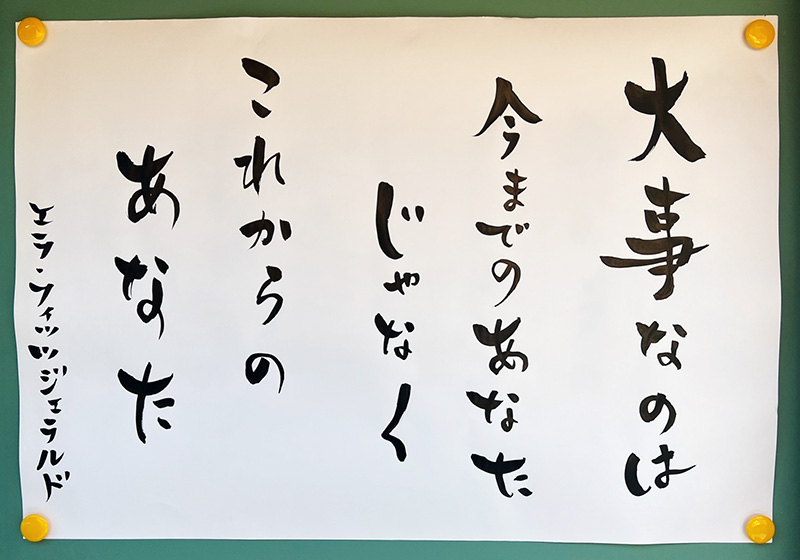 大事なのは
今までのあなた
じゃなく
これからの
あなた
エラ・フィッツジェラルド